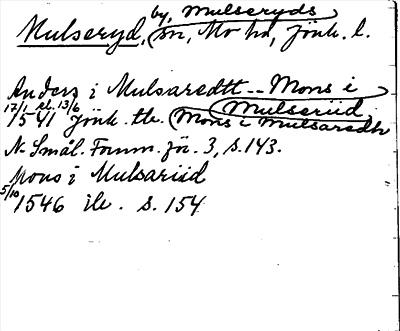 by, Mulseryds
Mulseryd, sn, Mo hd, Jönk. l.
Anders i Mulsaredtt -- Mons i
Mulseriid
17/1 kl. 13/6
1541 Jönk. tb. (Mons i Mulsaredh
N. Smål. Fornm. för. 3, s. 143.
Mons i Mulsariid
5/10 1546 ib. s. 154